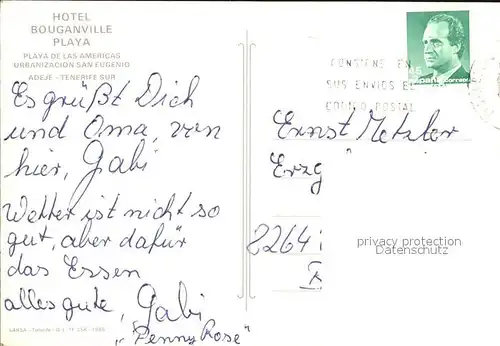 HOTEL
BOUGANVILLE
PLAYA
PLAYA DE LAS AMERICAS
URBANIZACION SAN EUGENIO
ADEJE - TENERIFE SUR
Es grüßt Dich
und Oma, von
hier, Gabi
Wetter ist nicht so
gut, aber dafür
das Essen
alles gute, Gabi
"Penny Rose"
CONSIGNE EN
SUS ENVIOS EL
CODIGO POSTAL
correos
Ernst Metzler
Erzg
2264
privacy protection
Datenschutz